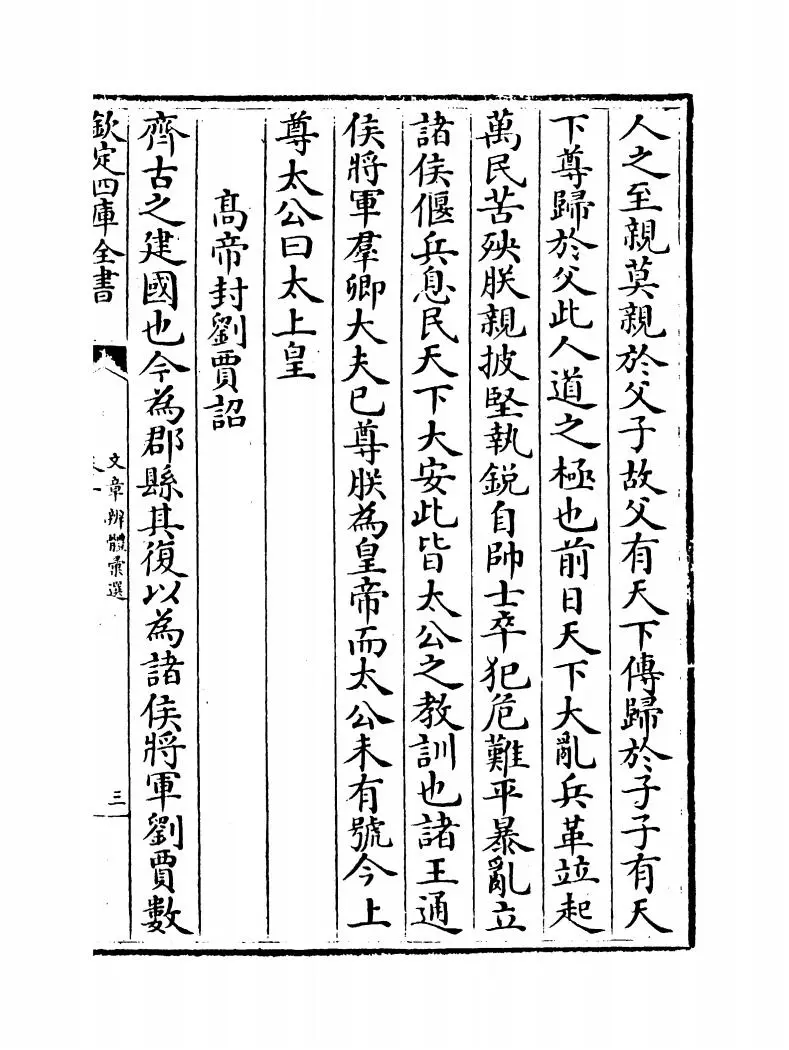 人之至親莫親於父子故父有天下傳歸於子子有天
下尊歸於父此人道之極也前日天下大亂兵革竝起
萬民苦殃朕親披堅執鋭自帥士卒犯危難平暴亂立
諸侯偃兵息民天下大安此皆太公之教訓也諸王通
侯將軍羣卿大夫已尊朕為皇帝而太公未有號今上
尊太公曰太上皇
髙帝封劉賈詔
齊古之建國也今為郡縣其復以為諸侯將軍劉賈數
欽定四庫全書
文章辨體彙選
三